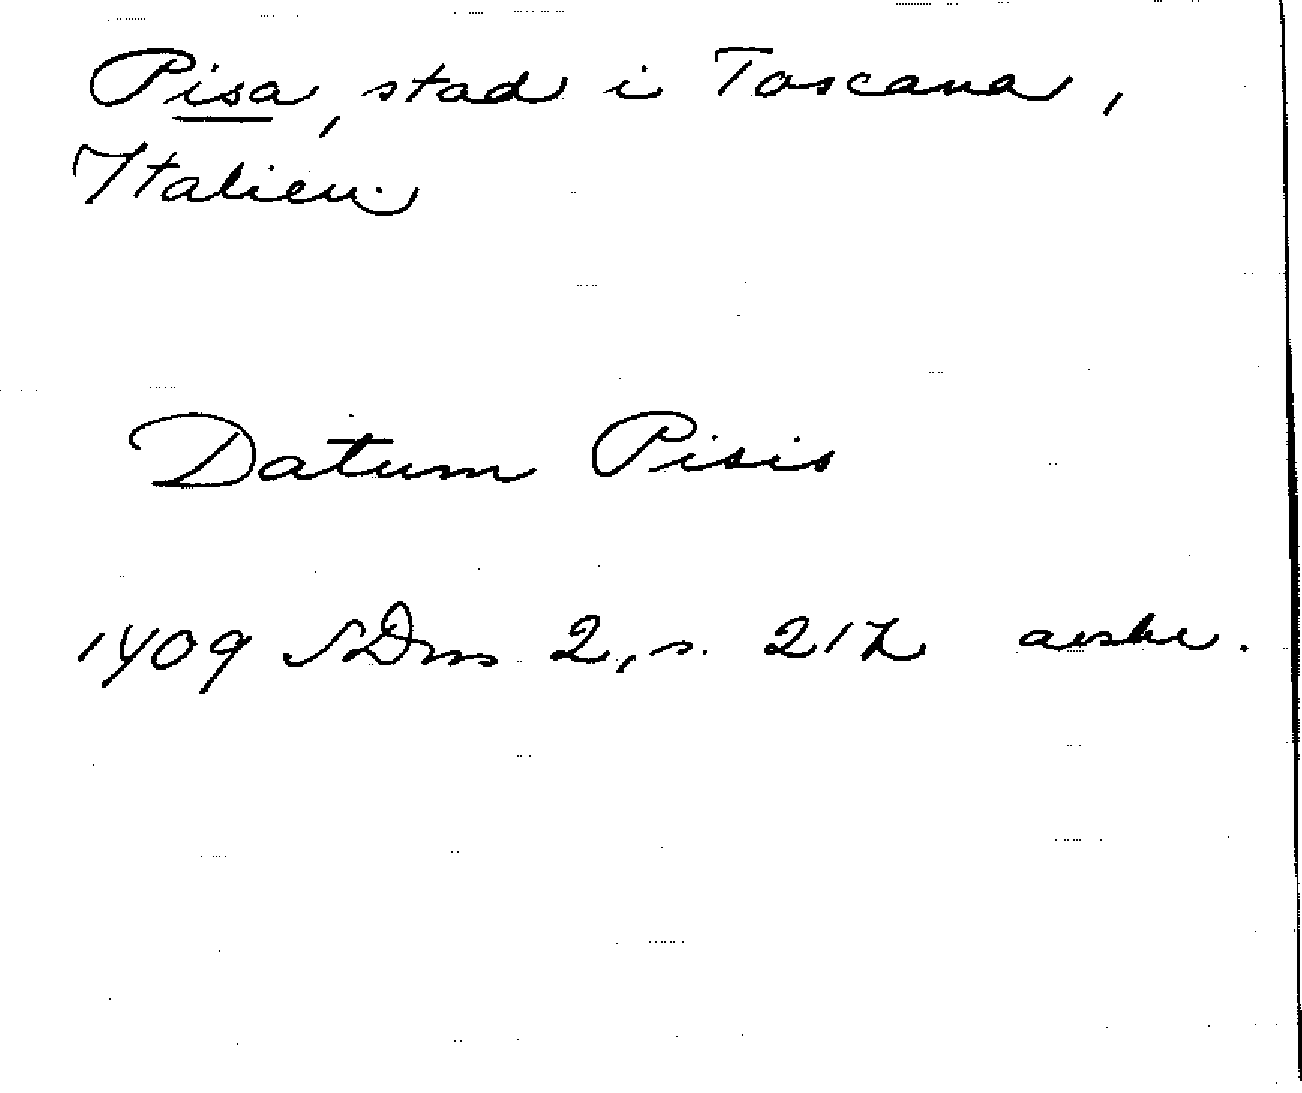 Pisa, stad i Toscana,
Italien.
Datum Pisis
1409 SDns 2, s. 212 avskr.